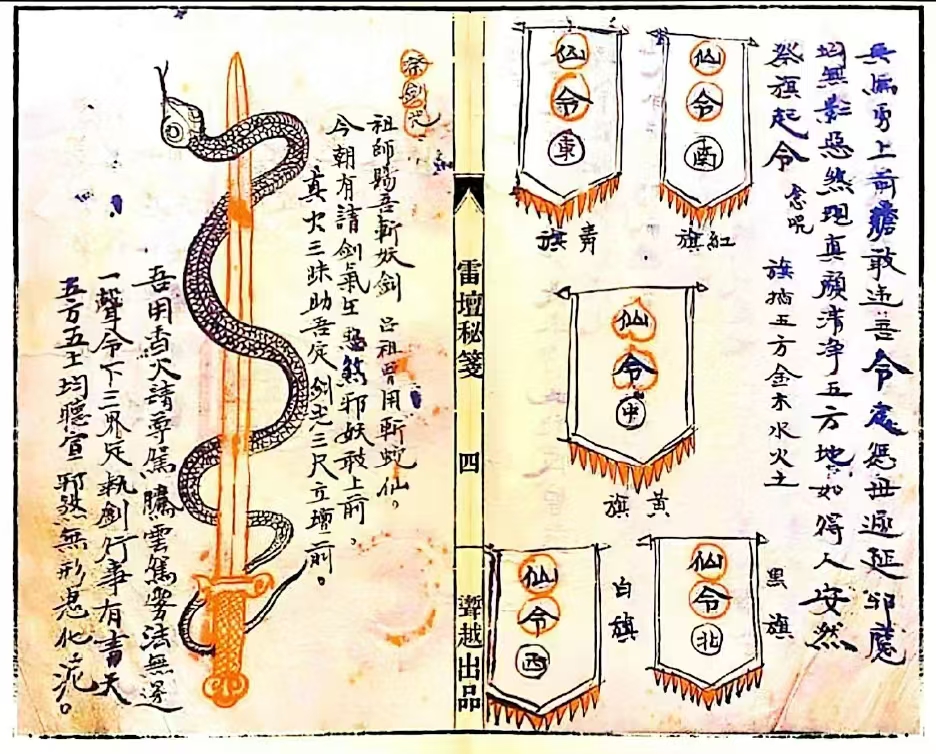 兵馬勇上前膽敢違吾令定惩毋遲延邪魔
均無影惡煞現真顏清净五方地如得人安然
祭旗起令 念呪
旗插五方金木水火土
仙令南
紅旗
仙令東
青旗
仙令中
黃旗
仙令北
黑旗
仙令西
白旗
雷壇秘箋
四
聾越出品
祭劍咒
祖師賜吾斬妖劍 呂祖曾用斬蛇仙。
今朝有請劍氣生 惡煞邪妖敢上前。
真火三昧助吾定 劍光三尺立壇前。
吾用香火請尊駕 騰雲駕雾法無邊
一聲令下三界定 執劍行事有青天
五方五土均聽宣 邪煞無形鬼化泥。